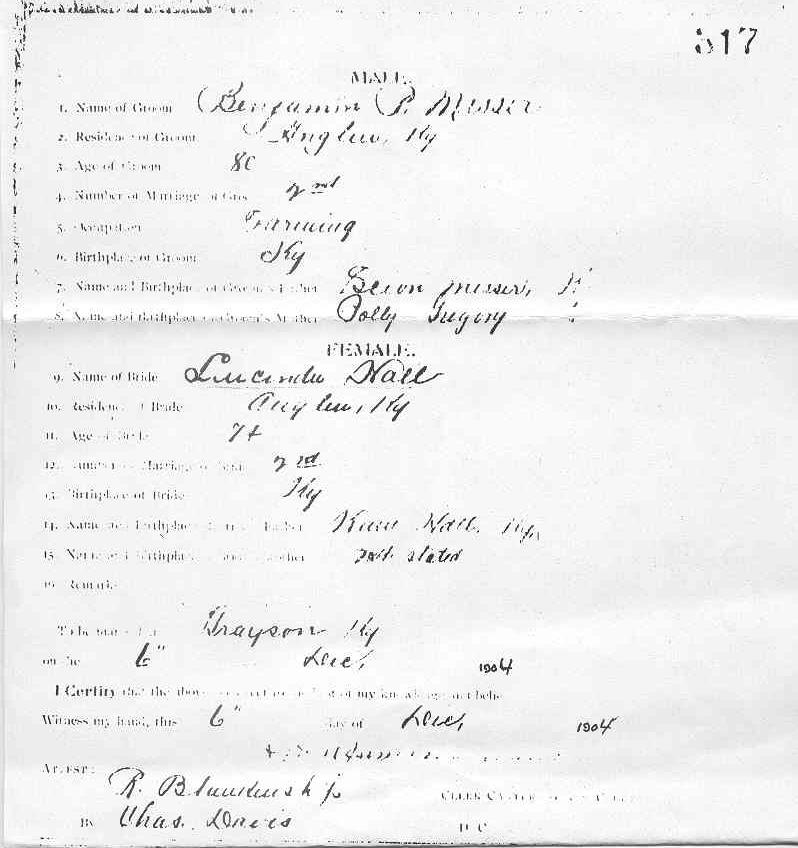 517
MALE.
1. Name of Groom Benjamin P. Messer
2. Residence of Groom Anglin, Ky
3. Age of Groom 80
4. Number of Marriage of Groom 2nd
5. Occupation Farming
6. Birthplace of Groom Ky
7. Name and Birthplace of Groom's Father messer, K
8. Name and Birthplace of Groom's Mother Polly
FEMALE.
9. Name of Bride Lucinda Hall
10. Residence of Bride Anglin, Ky
11. Age of Bride
12. Number of Marriage of Bride 2nd
13. Birthplace of Bride Ky
14. Name and Birthplace of Bride's Father Hall, Ky,
15. Name and Birthplace of Bride's Mother not stated
16. Remarks
To be married at Grayson Ky
on the 6" Dec, 1904
I Certify that the above is correct to the best of my knowledge and belief
Witness my hand, this 6" day of Dec, 1904
ATTEST:
R.
CLERK CARTER COUNTY COURT
By Chas. Davis D. C.